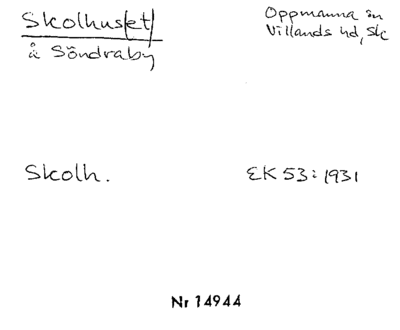 Skolhus/et/
å Söndraby
Oppmanna sn
Villands hd, Sk
Skolh.
EK 53:1931
Nr 14944